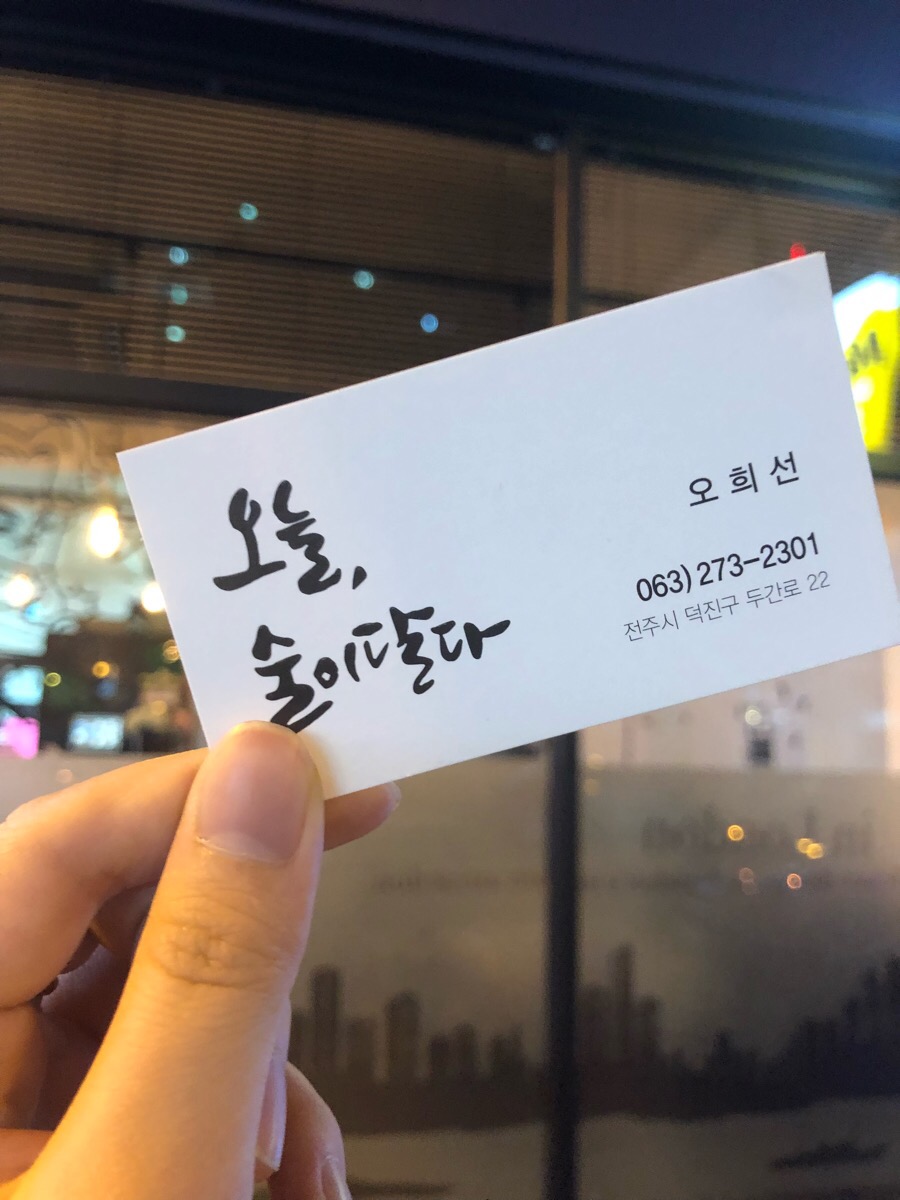 오늘,
술이달다
오희선
063) 273-2301
전주시 덕진구 두간로 22